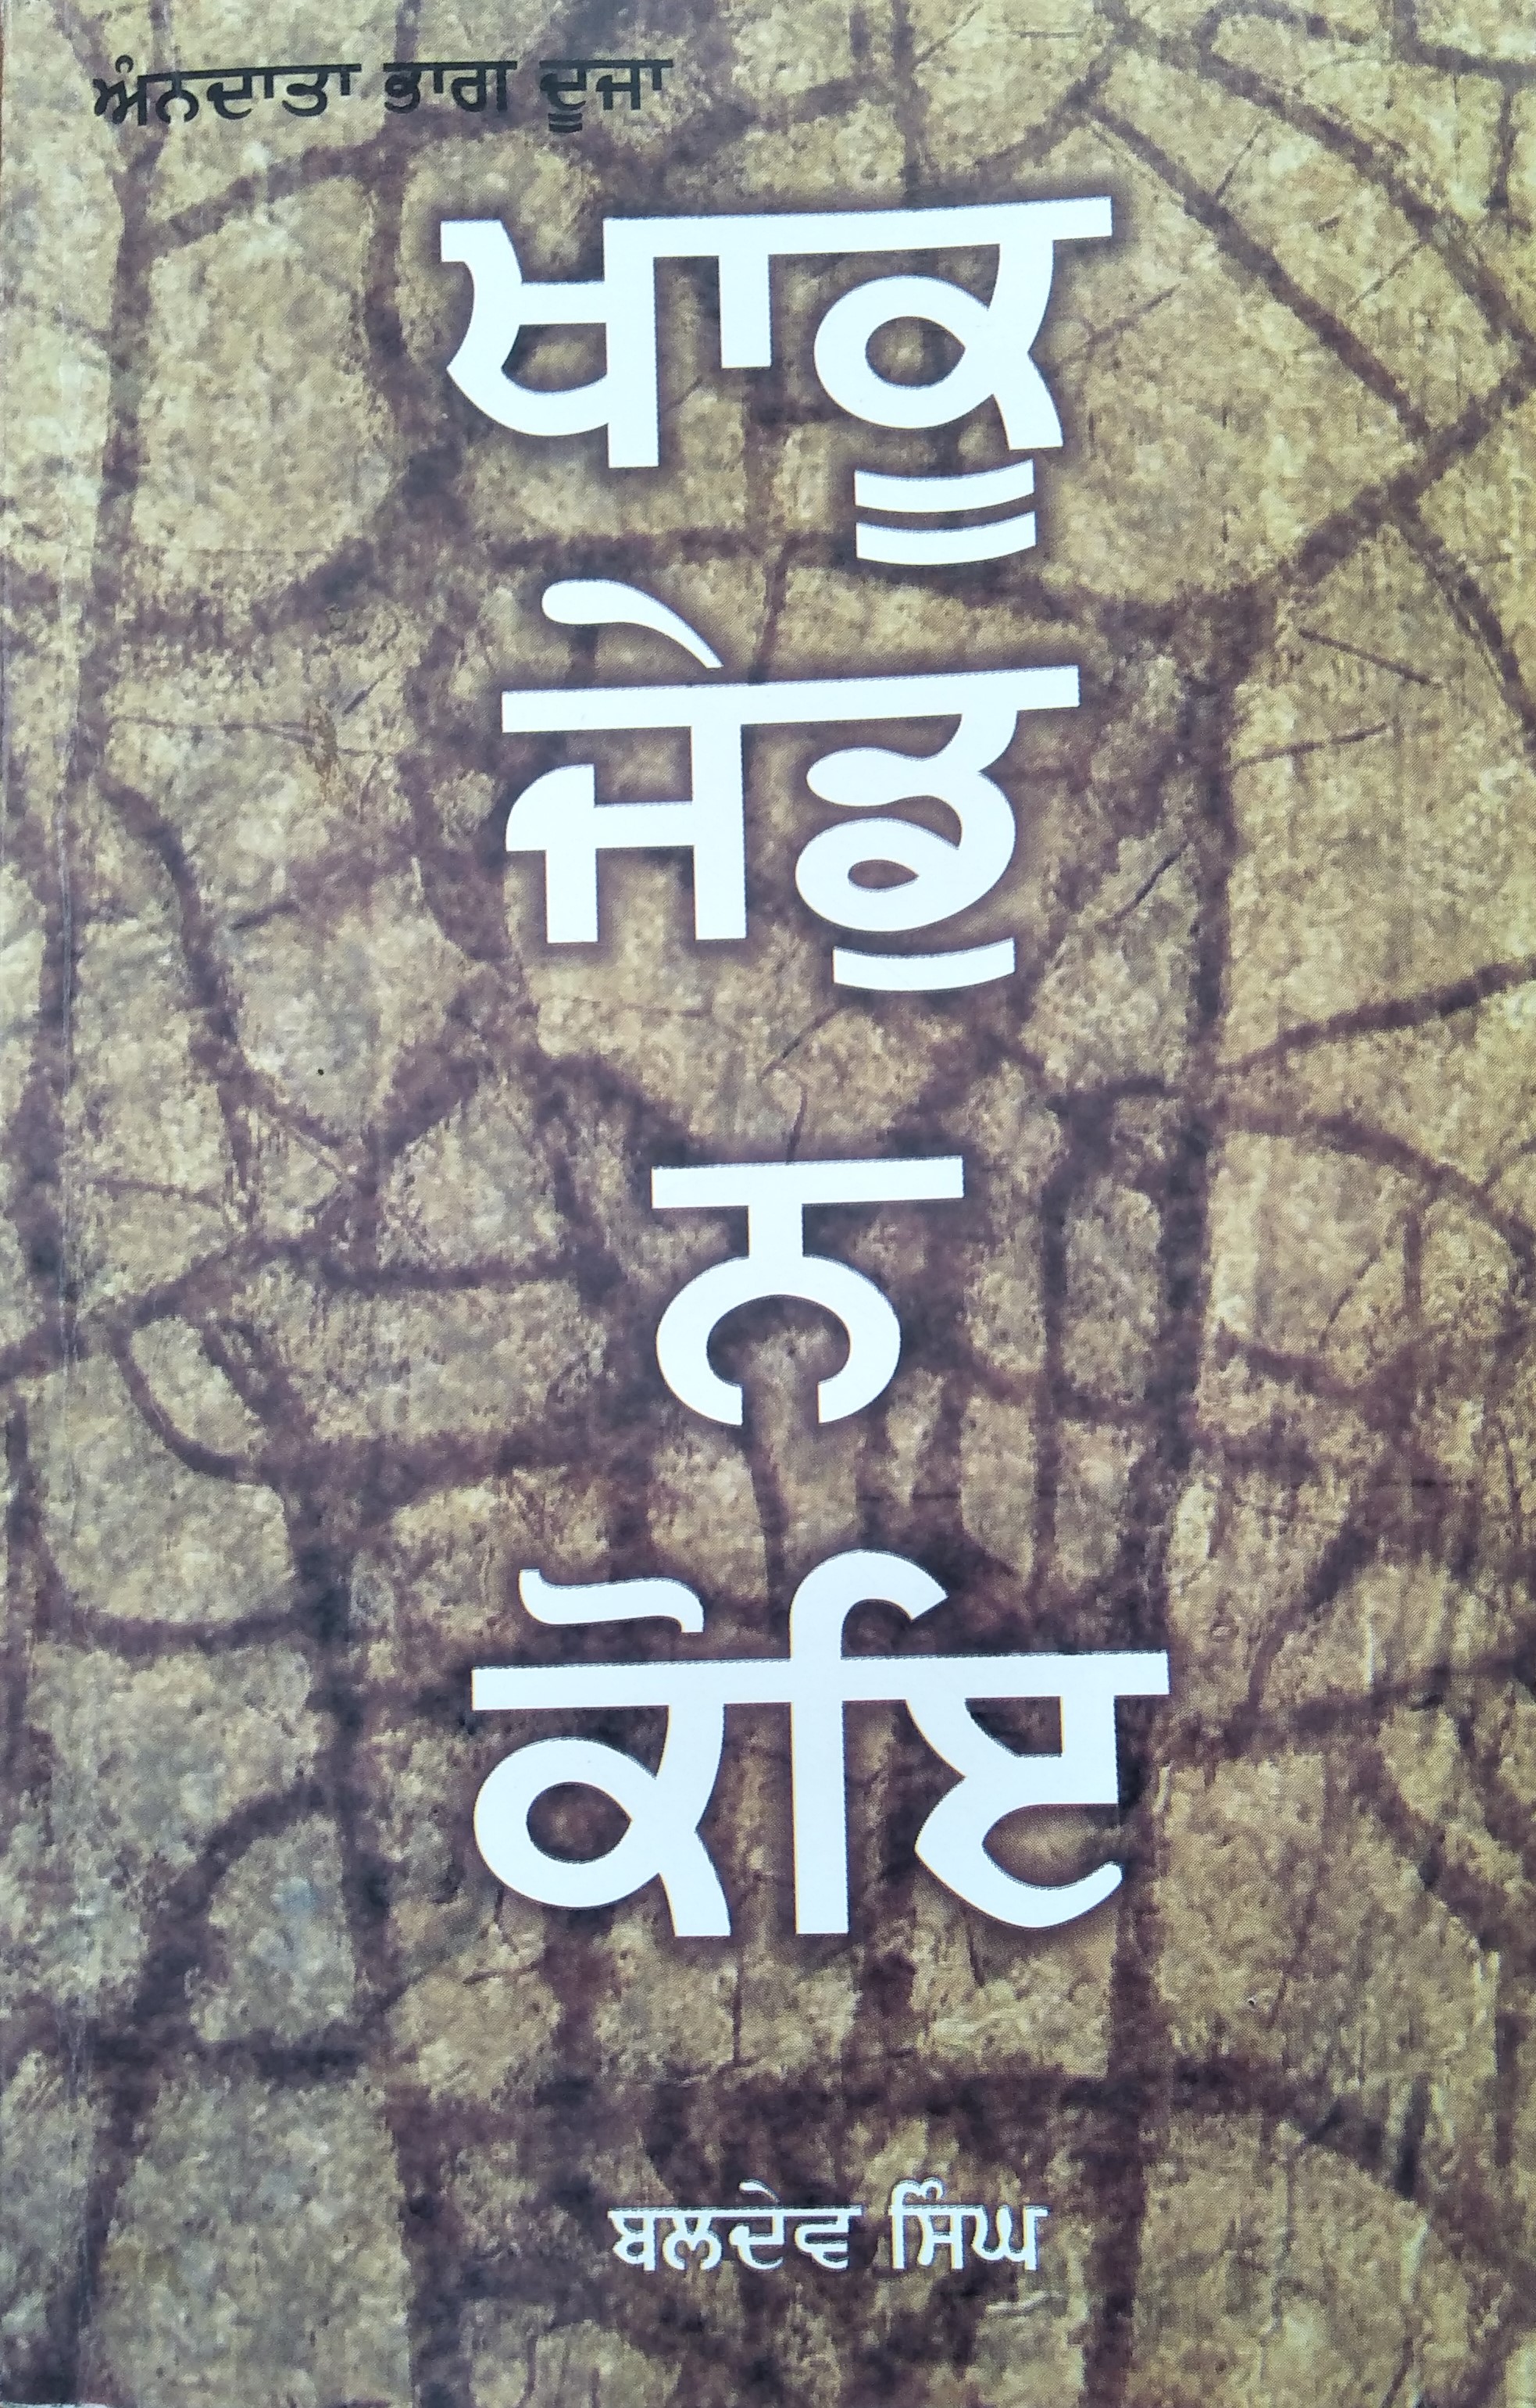 ਅੰਨਦਾਤਾ ਭਾਗ ਦੂਜਾ
ਖਾਕੂ
ਜੇਡੁ
ਨ
ਕੋਇ
ਬਲਦੇਵ ਸਿੰਘ